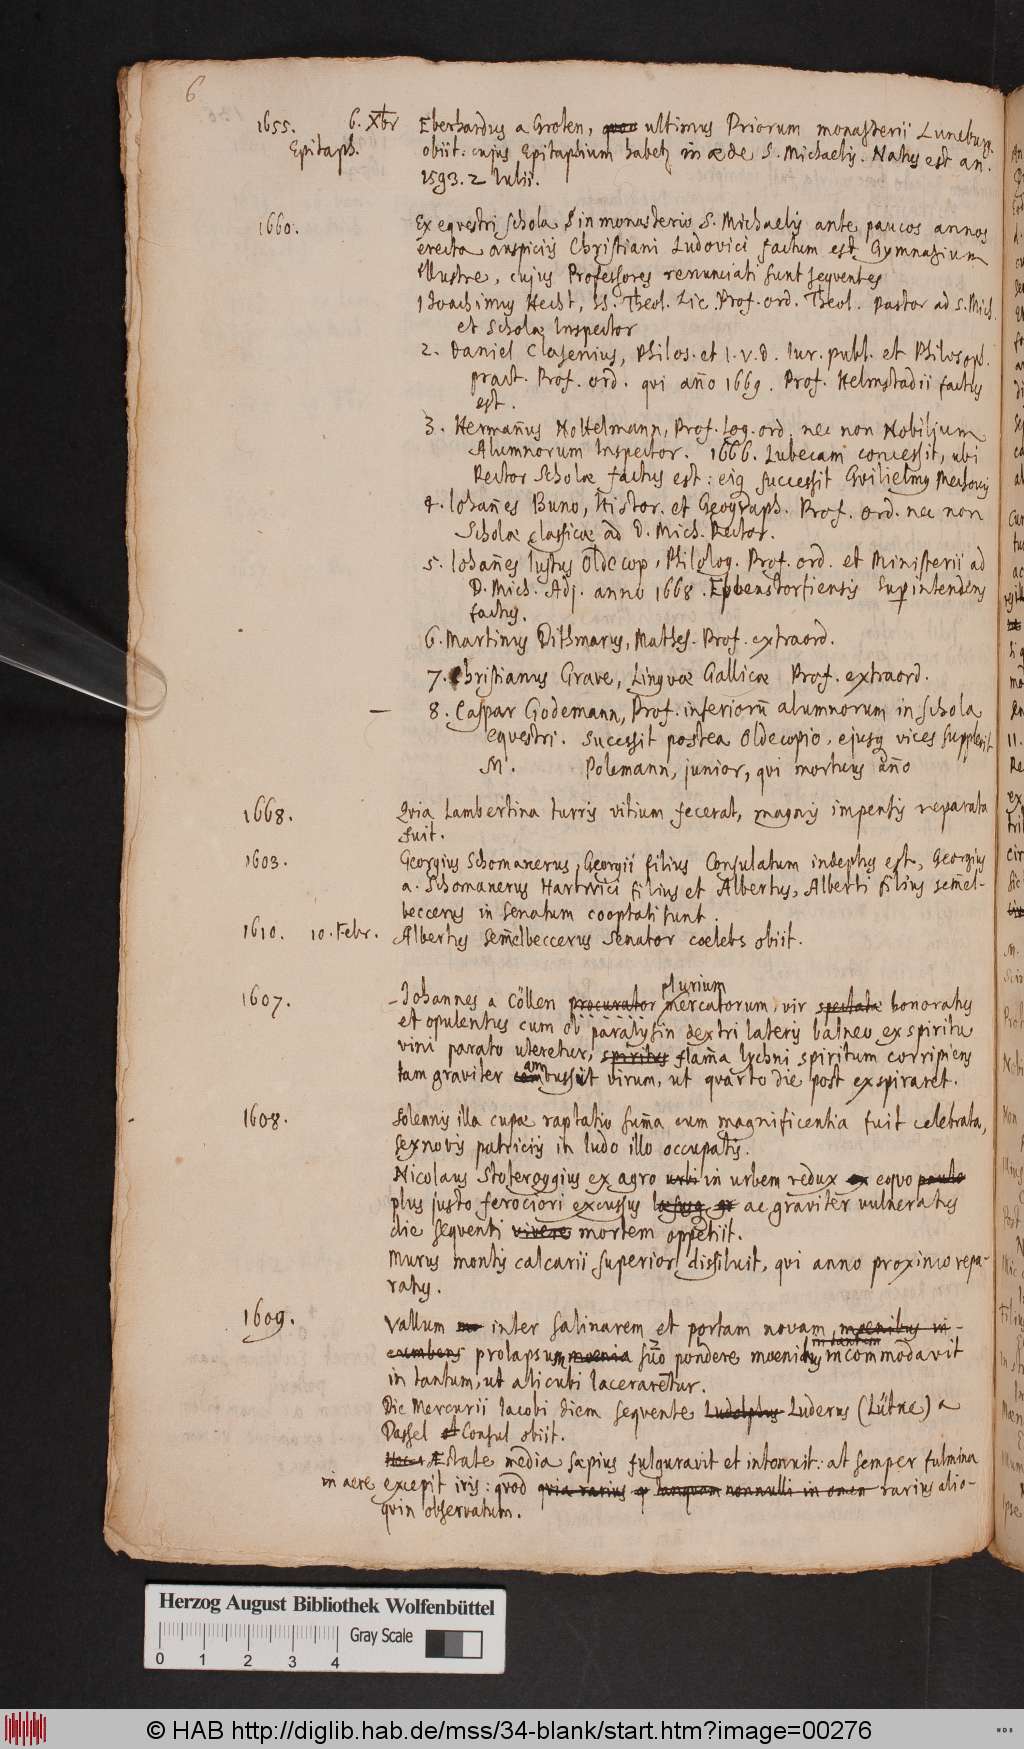 6
1655. 6. Xbr Eberhardus a Groten, ultimus Priorum monasterii Luneburg.
Epitaph. obiit: cujus Epitaphium habetr in æde S. Michaelis. Natus est an.
1593. 2 Iulii.
1660. Ex eqvestri schola in monasterio S. Michaelis ante paucos annos
erecta auspiciis Christiani Ludovici factum est Gymnasium
illustre, cujus Professores renunciati sunt seqventes
1 Ioachimus Hecht, SS. Theol. Lic. Prof. ord. Theol. Pastor ad S. Mich.
et Scholæ Inspector
2. Daniel Clasenius, Philos. et I. V. D. Iur. publ. et Philosoph.
pract. Prof. ord. qui año 1669. Prof. Helmstadii factus
est.
3. Hermañus Noltelmann, Prof. Log. ord. nec non Nobilium
Alumnorum Inspector. 1666. Lubecam concessit, ubi
Rector Scholæ factus est: eiq successit Gvilielmus
4. Iohañes Buno, Histor. et Geograph. Prof. ord. nec non
Scholæ classicæ ad D. Mich. Rector.
5. Iohañes Iustus Oldecop, Philolog. Prof. ord. et Ministerii ad
D. Mich. Adj. anno 1668. Ebbenstorfiensis Superintendens
factus.
6. Martinus Dithmarus, Mathes. Prof. extraord.
7. Christianus Grave, Lingvæ Gallicæ Prof. extraord.
8. Caspar Godemann, Prof. inferiorũ alumnorum in schola
eqvestri. Sucessit postea Oldecopio, ejusq vices supplevit
M. Polemann, junior, qui mortuus año
1668. Qvia Lambertina turris vitium fecerat, magnis impensis reparata
fuit.
1603. Georgius Schomakerus, Georgii filius Consulatum indeptus est, Georgius
a. Schomakerus Hartwici filius et Albertus, Alberti filius semel-
beccerus in Senatum cooptati sunt.
1610. 10. Febr. Albertus Semelbeccerus Senator cœlebs obiit.
plurium
1607. Johannes a Cöllen procurator mercatorum, vir spectatæ honoratus
et opulentus cum ob paralysin dextri lateris balneo ex spiritu
vini parato uteretur, spiritus flam̃a lychni spiritum corripiens
am
tam graviter combussit virum, ut qvarto die post exspiraret.
1608. Solennis illa cupæ raptatio sum̃a cum magnificentia fuit celebrata,
sex novis patriciis in ludo illo occupatis.
Nicolaus Stoteroggius ex agro urbi in urbem redux ex eqvo paulo
plus justo ferociori excussus læsusq et ac graviter vulneratus
die seqventi vivere mortem oppetiit.
Murus montis calcarii superior dissiluit, qvi anno proximo repa-
ratus.
1609. Vallum inter Salinarem et portam novam, mœnibus in-
cumbens prolapsum mœnia suo pondere mœnibus incommodavit
in tantum, ut alicubi laceraretur.
Die Mercurii Iacobi diem seqvente Ludolphus Luderus (Lütke) a
Dassel et Consul obiit.
Æstate media sæpius fulguravit et intonuit: at semper fulmina
in aere excepit iris: qvod qvia rarius tanqvam nonnulli in omen rarius alio-
qvin observatum.
Herzog August Bibliothek Wolfenbüttel
Gray Scale
0 1 2 3 4
© HAB http://diglib.hab.de/mss/34-blank/start.htm?image=00276